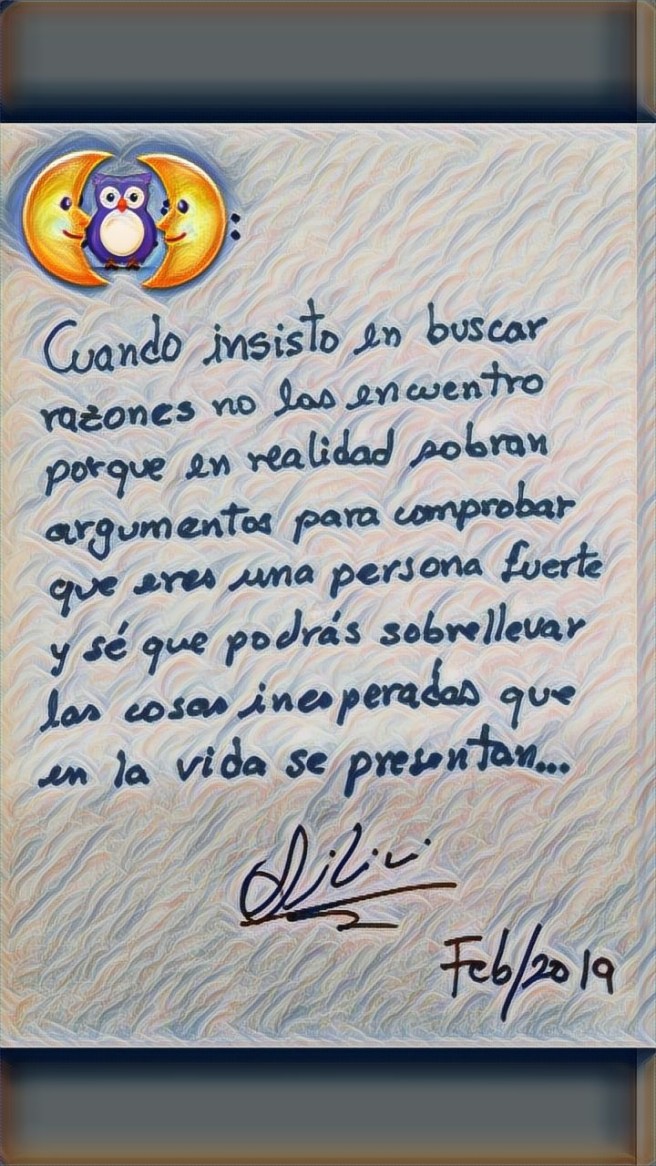 :
Cuando insisto en buscar
razones no las encuentro
porque en realidad sobran
argumentos para comprobar
que eres una persona fuerte
y sé que podrás sobrellevar
las cosas inesperadas que
en la vida se presentan...
Feb/2019